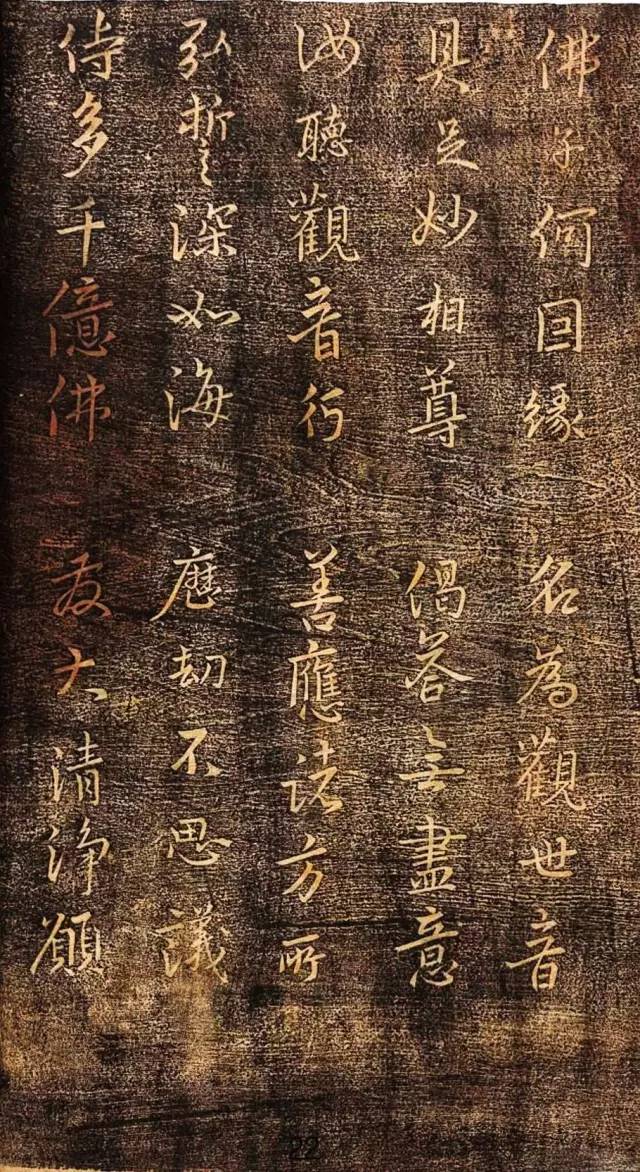 佛子何因緣 名為觀世音
具足妙相尊 偈答無盡意
汝聽觀音行 善應諸方所
弘誓深如海 歷劫不思議
侍多千億佛 發大清淨願
22